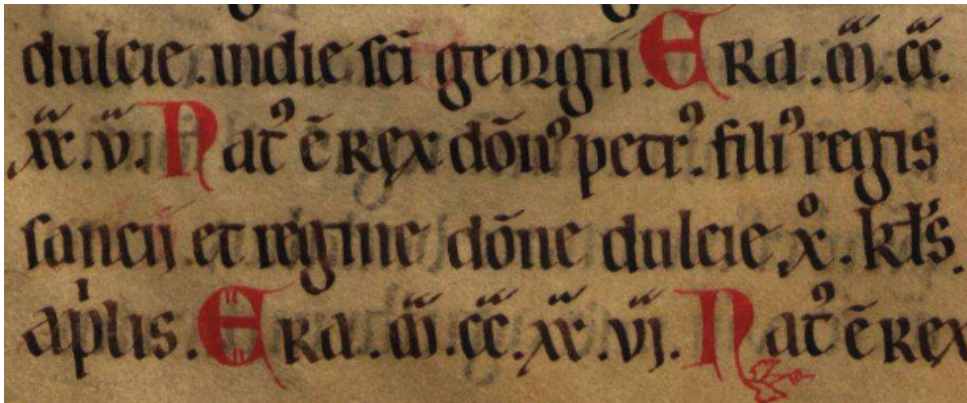 dulcie. in die sc̄i georgij. Era. m̄. c̄c̄.
x̄x̄. v̄. Natꝰ ē Rex dōnꝰ petrꝰ. filiꝰ regis
sancij et regine dōne dulcie x͛. kłs.
ap̄lis. Era. m̄. c̄c̄. x̄x̄. v̄j. Natꝰ ē Rex